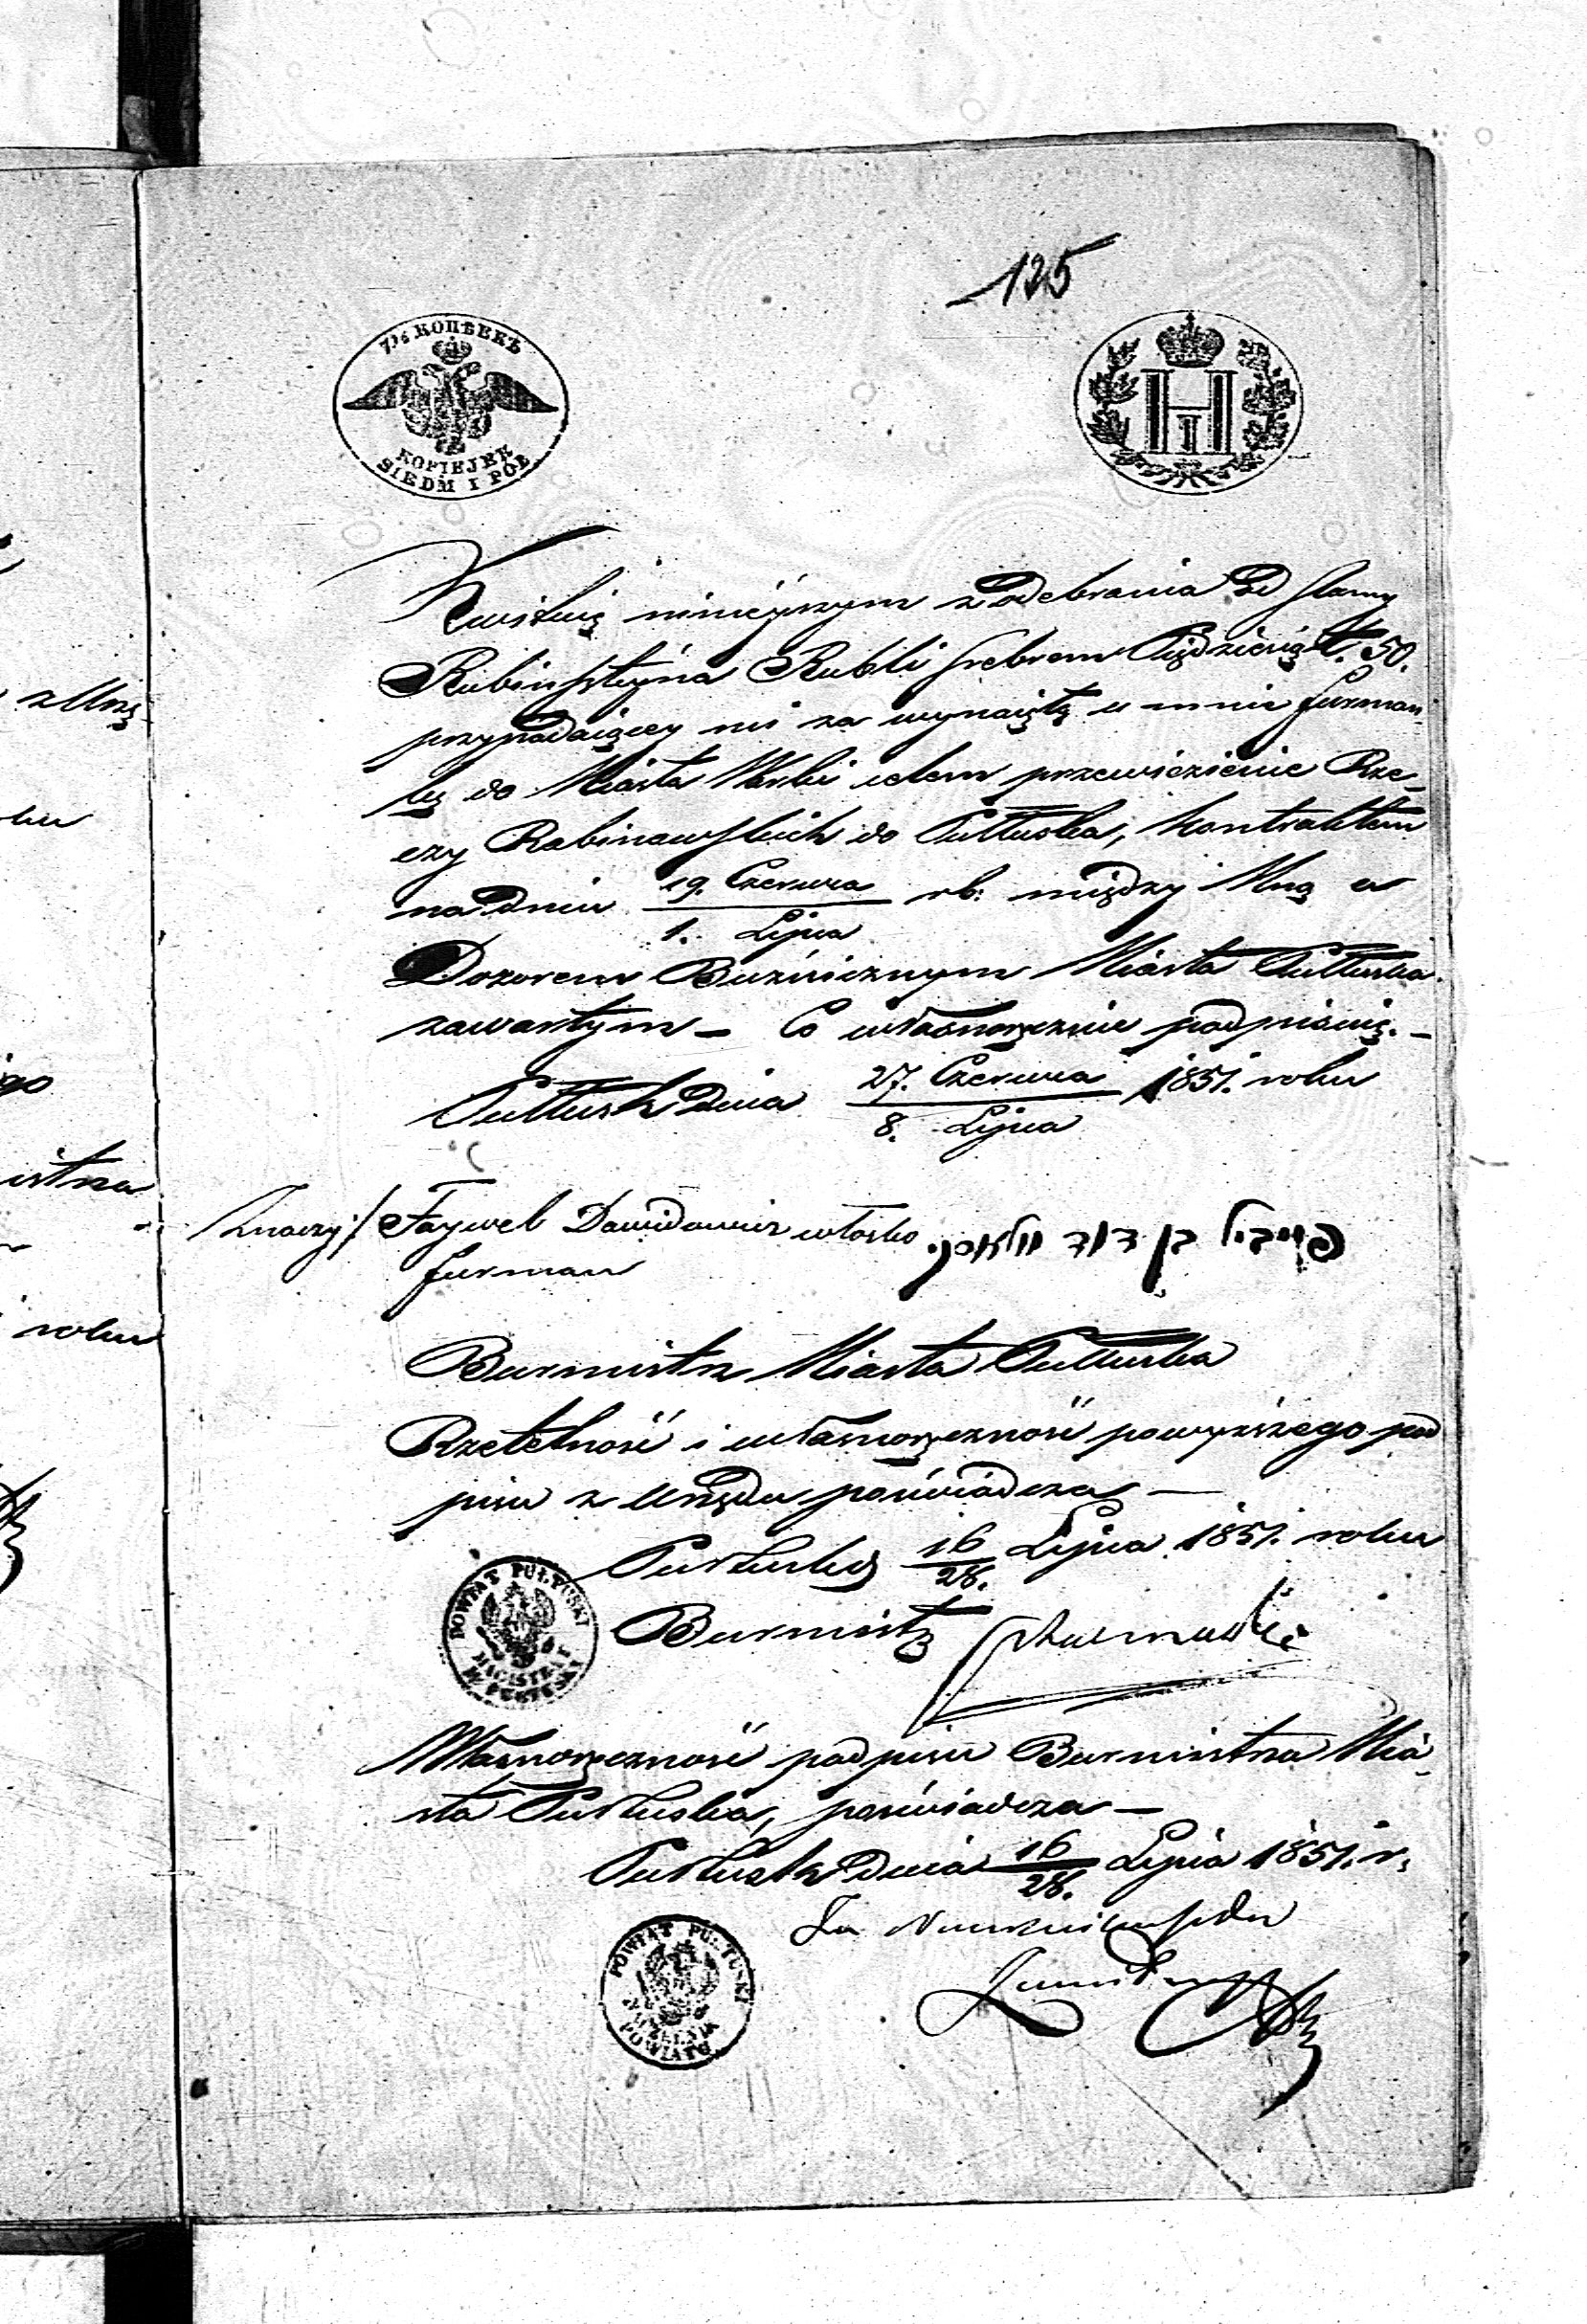 125
7½ КОПѢЕКЪ
KOPIEJEK
SIEDM I PÓŁ
Н I
Kwituię ninieyszym z odebrania od
Rubinsztyna Rubli srebrem Pięćdziesiąt. 50.
przypadaiącey mi za wynaiętą u mnie furman-
kę do Miasta Warki celem przewiezienie Rze-
czy Rabinowskich do Pułtuska, kontraktem
na dniu 19. Czerwca / 1. Lipca rb: między Mną a
Dozorem Bużnicznym Miasta Pułtuska
zawartym – Co własnoręcznie podpisuię. –
Pułtusk dnia 27. Czerwca / 8. Lipca 1851. roku
Znaczy:/ Faywel Dawidowicz włosko פייביל בן דוד
furman
Burmistrz Miasta Pułtuska
Rzetelność i własnoręczność powyższego pod
pisu z Urzędu poświadcza –
Pułtusk 16/28. Lipca 1851. roku
Burmistrz
POWIAT PUŁTUSKI
MAGISTRAT
M. PUŁTUSKA
Własnoręczność podpisu Burmistrza Mia-
sta Pułtuska, poświadcza –
Pułtusk dnia 16/28. Lipca 1851. r.
Za Naczelnika
POWIAT PUŁTUSKI
POWIATU
z Urzę
ku
go
istrza
roku